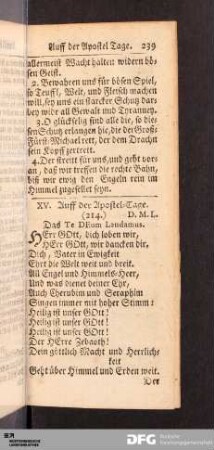 Auff der Apostel Tage. 239
allermeist Wacht halten widern bö-
sen Geist.
2. Bewahren uns für bösen Spiel,
so Teuffl, Welt, und Fleisch machen
will, sey uns ein starcker Schutz dar-
bey wide all Gewalt und Tyranney.
3. O glückselig sind alle die, so die-
sen Schutz erlangen hie, die der Grosse
Fürst Michael rett, der dem Drachn
sein Kopff zertrett.
4. Der streitt für uns, und geht vor
an, daß wir treffen die rechte Bahn,
biß wir ewig den Engeln rein im
Himmel zugesellet seyn.
XV. Auff der Apostel-Tage.
(214.) D. M. L.
Das Te DEum Laudamus.
HErr GOtt, dich loben wir,
HErr GOtt, wir dancken dir,
Dich, Vater in Ewigkeit
Ehrt die Welt weit und breit.
All Engel und Himmels-Heer,
Und was dienet deiner Ehr,
Auch Cherubim und Seraphim
Singen immer mit hoher Stimm:
Heilig ist unser GOtt!
Heilig ist unser GOtt!
Heilig ist unser GOtt!
Der HErre Zebaoth!
Dein göttlich Macht und Herrlich-
keit
Geht über Himmel und Erden weit.
Der
DFG Deutsche
Forschungsgemeinschaft